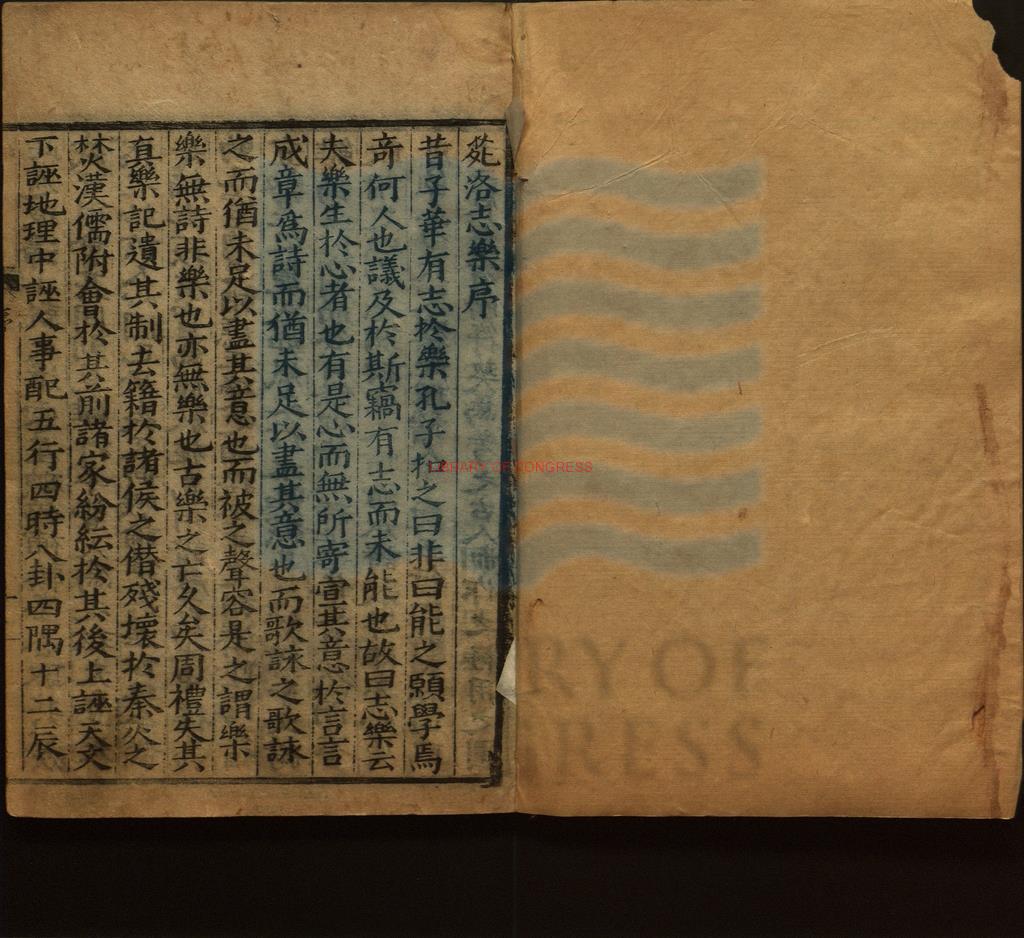 苑洛志樂序
昔子華有志於樂孔子扣之曰非曰能之願學焉
竒何人也議及於斯竊有志而未能也故曰志樂云
夫樂生於心者也有是心而無所寄宣其意於言言
成章爲詩而猶未足以盡其意也而歌詠之歌詠
之而猶未足以盡其意也而被之聲容是之謂樂
樂無詩非樂也亦無樂也古樂之亡久矣周禮失其
真樂記遺其制去籍於諸侯之僣殘壞於秦火之
焚漢儒附會於其前諸家紛紜於其後上誣天文
下誣地理中誣人事配五行四時八卦四隅十二辰
LIBRARY OF CONGRESS
RY OF
GRESS